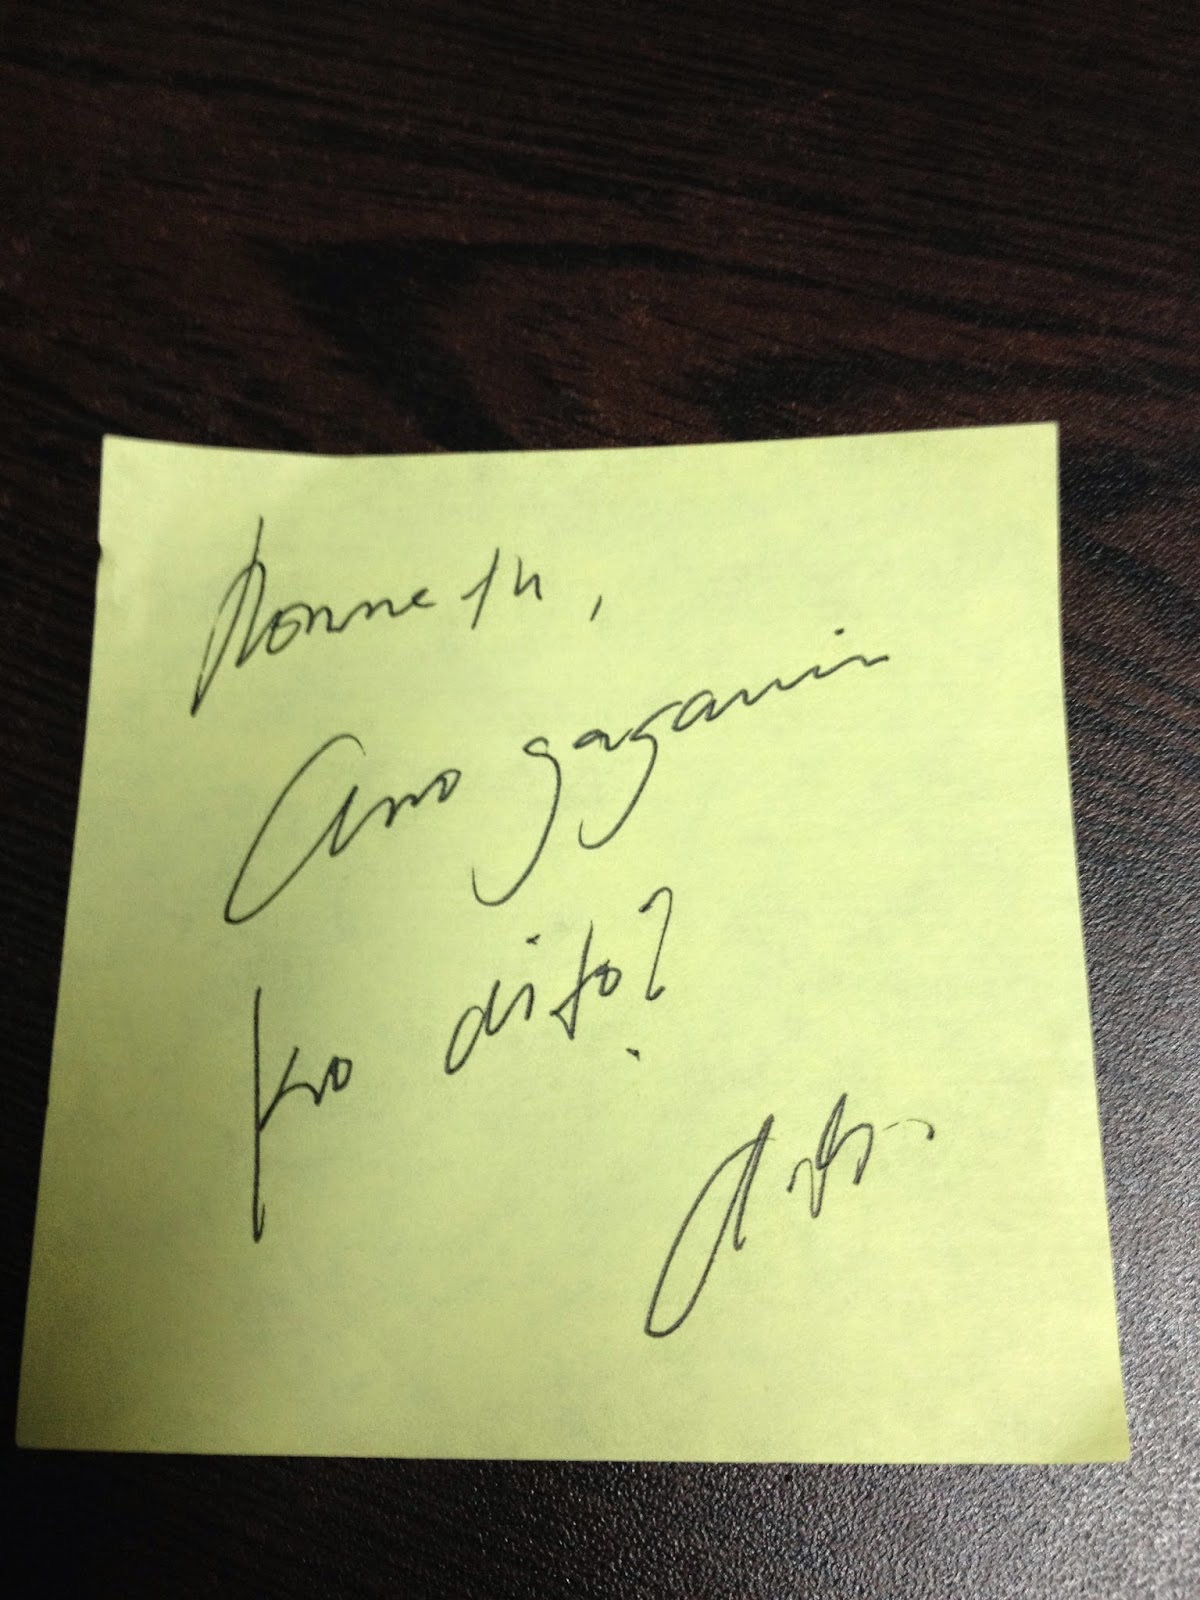 Ronneth,
Ano gagawin
ko dito?